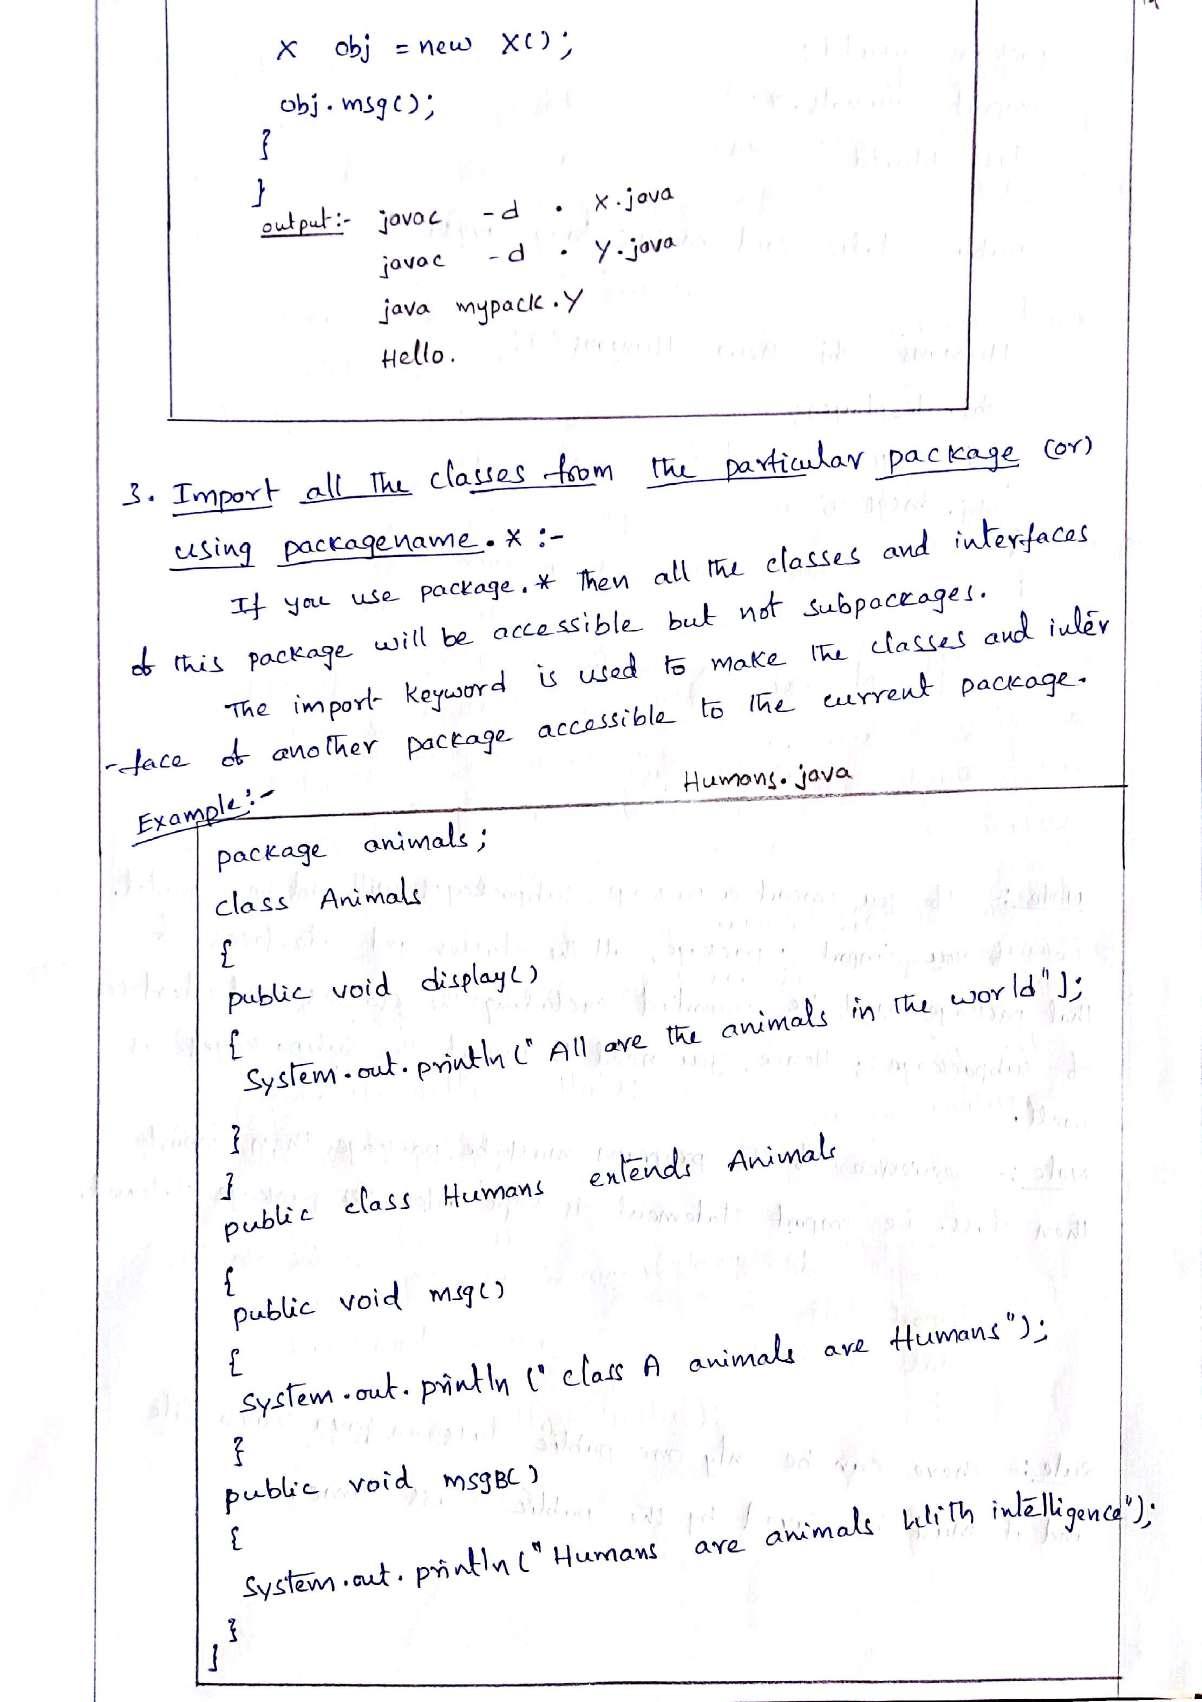 X obj = new X();
obj.msg();
}
}
output:- javac -d . X.java
javac -d . Y.java
java mypack.Y
Hello.
3. Import all the classes from the particular package (or)
using packagename.* :-
If you use package.* then all the classes and interfaces
of this package will be accessible but not subpackages.
The import keyword is used to make the classes and inter
-face of another package accessible to the current package.
Humans.java
Example:-
package animals;
class Animals
{
public void display()
{
System.out.println(" All are the animals in the world");
}
}
public class Humans extends Animals
{
public void msg()
{
system.out.println(" class A animals are Humans");
}
public void msgB()
{
System.out.println(" Humans are animals With intelligence");
}
}